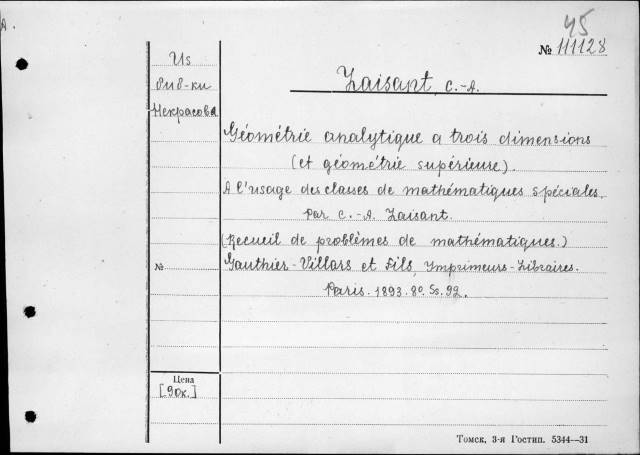 45
№ 111128
Из
биб-ки
Некрасова
Laisant, C.-A.
Géométrie analytique a trois dimensions
(et géométrie supérieure).
A l'usage des classes de mathématiques spéciales.
Par C.-A. Laisant.
(Recueil de problèmes de mathématiques.)
Gauthier-Villars et Fils, Imprimeurs-Libraires.
Paris. 1893. 8º. Ss. 92.
№
Цена
[90к.]
Томск, 3-я Гостип. 5344—31